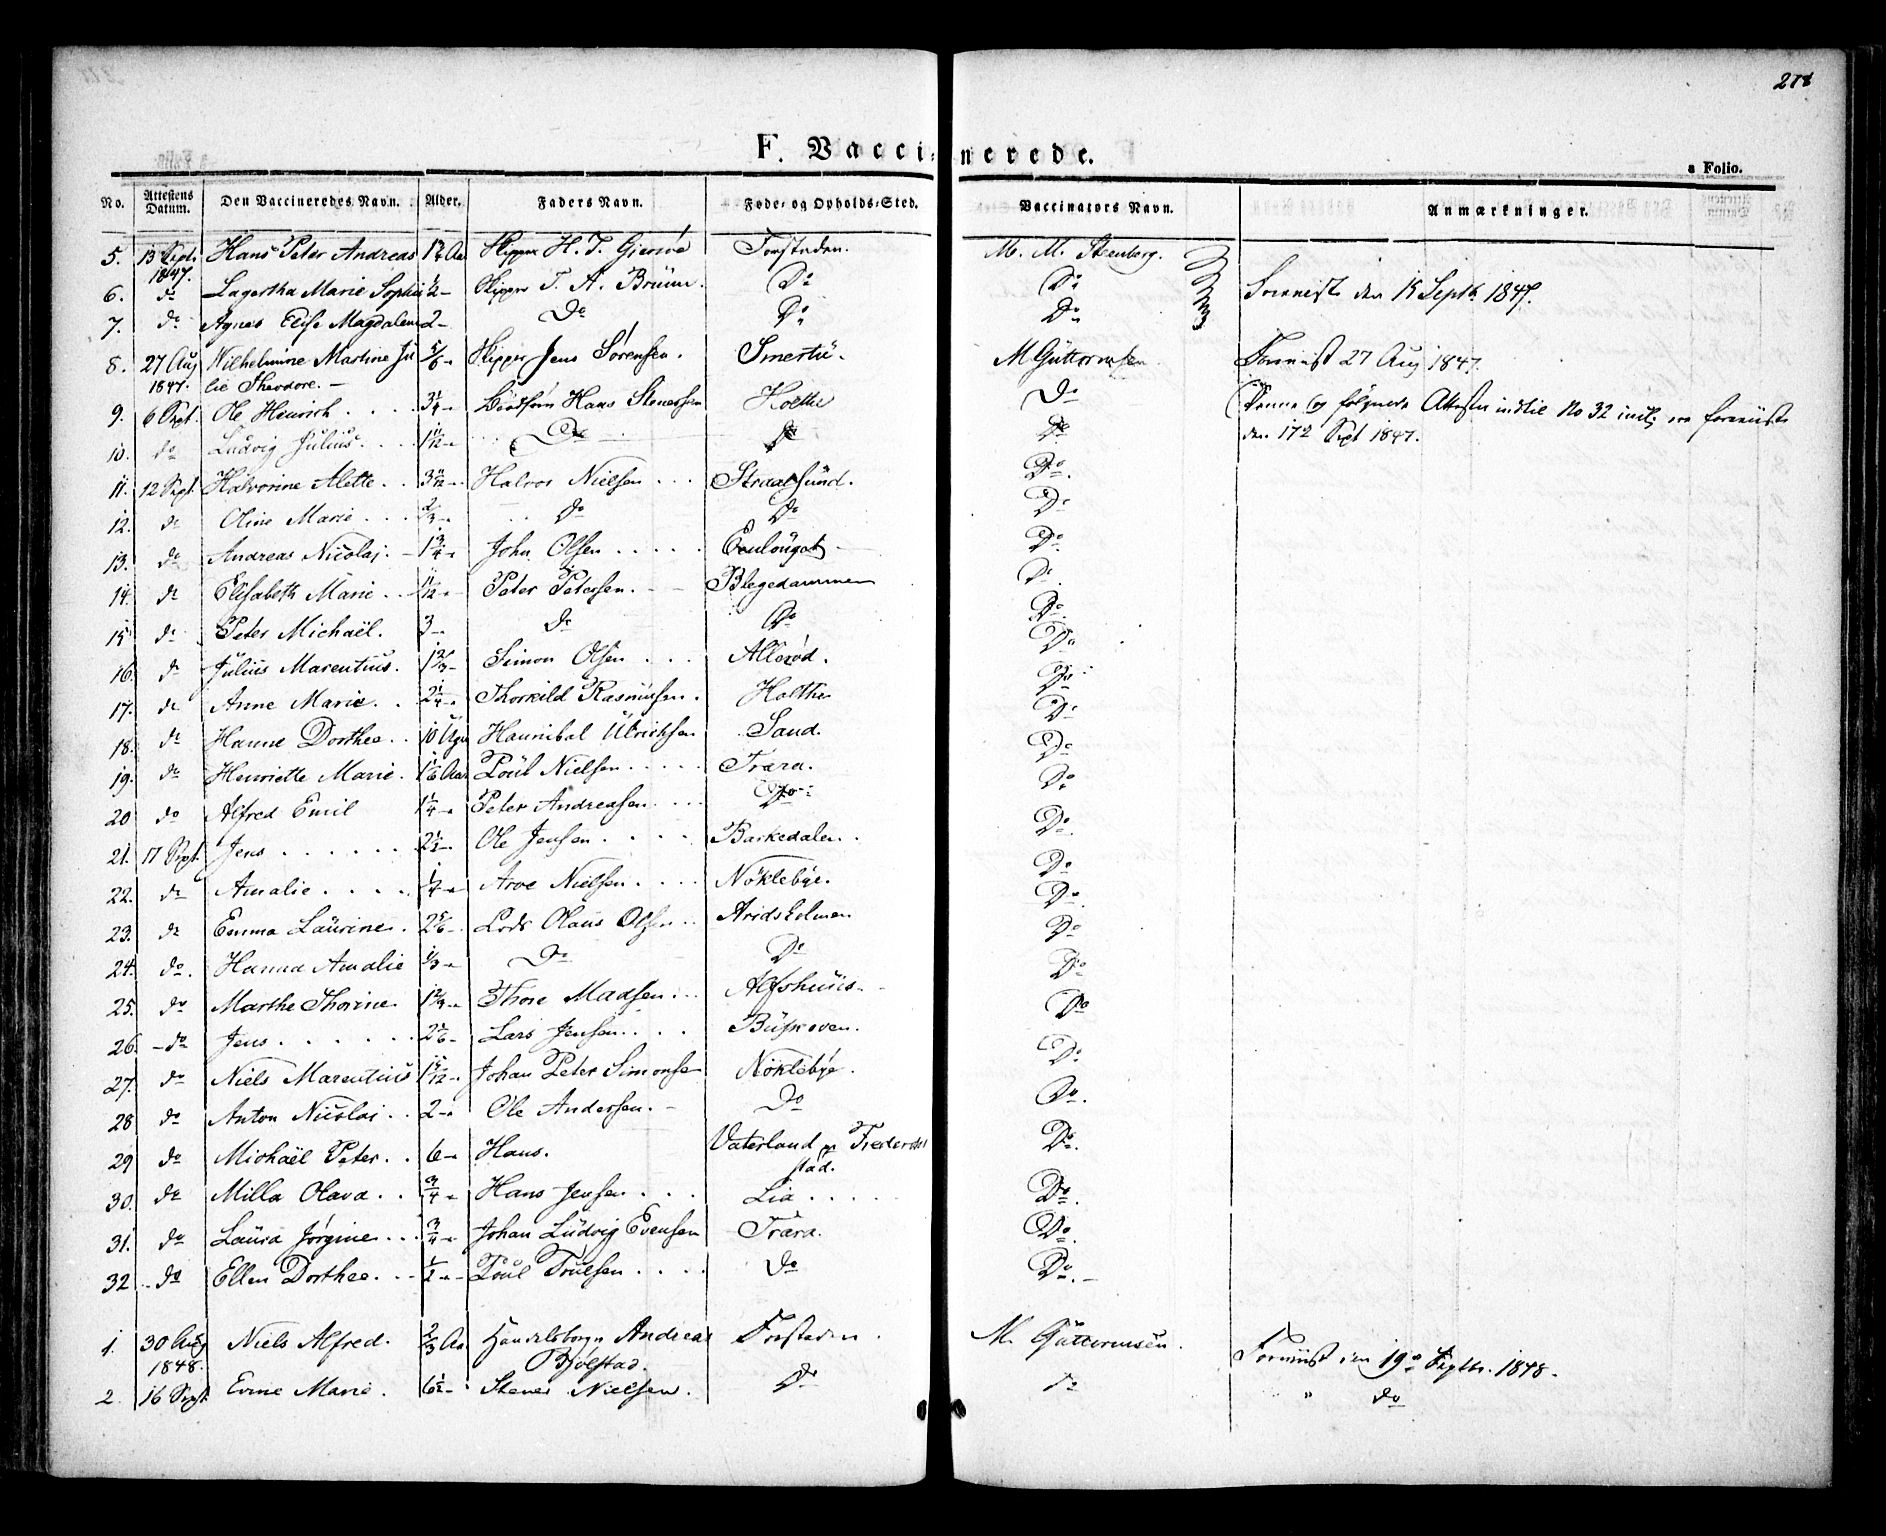 278
F. Vaccinerede.
a Folio.
No. Attestens Datum. Den Vaccineredes Navn. Alder. Faders Navn. Føde- og Opholds-Sted. Vaccinators Navn. Anmærkninger.
5. 13 Sept. 1847. Hans Peter Andreas Skipper H. T. Forstaden. M. M. Steenberg.
6. do Lagertha Marie Sophie ½ Skipper T. A. Bruun. Do Do Fornviist den 15 Septb 1847.
7. do Agnes Elise Magdalene 2 Do Do Do
8. 27 Aug 1847. Wilhelmine Martine Ju 5/6 Skipper Jens Sørensen. Smertü. M Güttormsen Fornviist 27 Aug 1847.
lie Theodore.
9. 6 Sept. Ole Heinrich 3¼ Hans Stenersen Holthe Do Denne og følgende Attester indtil No 32 incl; ere foreviiste
10. do Ludvig Julius. 1 11/12 Do Do Do den 17de Sept 1847.
11. 12 Sept. Halvorine Alette 3 Halvor Nielsen Straalsund. Do.
12. do Oline Marie 2/3 Do Do Do
13. do Andreas Nicolaj. 1¾ John Olsen Do.
14. do Elisabeth Marie 11/12 Peter Petersen. Blegedammen Do
15 do Peter Michaël. 3 Do Do Do
16. do Julius Marentius. 1 2/3 Simon Olsen Allerød. Do
17. do Anne Marie. 2¼ Thorkild Rasmussen. Holthe Do
18. do Hanne Dorthea 10 Uger Hannibal Ulrichsen Sand. Do
19. do Henriette Marie. 1 1/6 Aar Poül Nielsen Trara. Do
20 do Alfred Emil 1¼ Peter Andreasen Do Do
21. 17 Sept. Jens 2½ Ole Jensen Barkedalen. Do
22. do Amalie ¼ Arve Nielsen. Nöklebye. Do
23. do Emma Laurine. 2 5/6 Lods Olaus Olsen Aridsholmen Do
24. do. Hanna Amalie 1/3 Do Do Do
25. do Marthe Thorine 1 2/3 Thore Madsen Alfshuus Do
26. do Jens 2 Lars Jensen Büskoven. Do
27. do Niels Marentius 1 Johan Peter Simonsen Nöklebye. Do
28 do Anton Nicolai 2 Ole Andersen. Do Do.
29 do Michaël Peter. 6 Hans. Vaterland Frederiks Do.
stad.
30. do Milla Olava ¾ Hans Jensen Lia Do.
31. do Laura Jørgine ¾ Johan Ludvig Evensen Trara. Do.
32 do Ellen Dorthea. ½ Poül Troülsen Do Do.
1. 30 Aug 1848. Niels Alfred. 2/3 Aar Handelsborger Andreas Forstaden. M. Güttormsen. Forevist den 19de Septbr. 1848.
Bjølstad.
2. 16 Sept. Evine Marie. 6½ Stener Nielsen. Do do " do